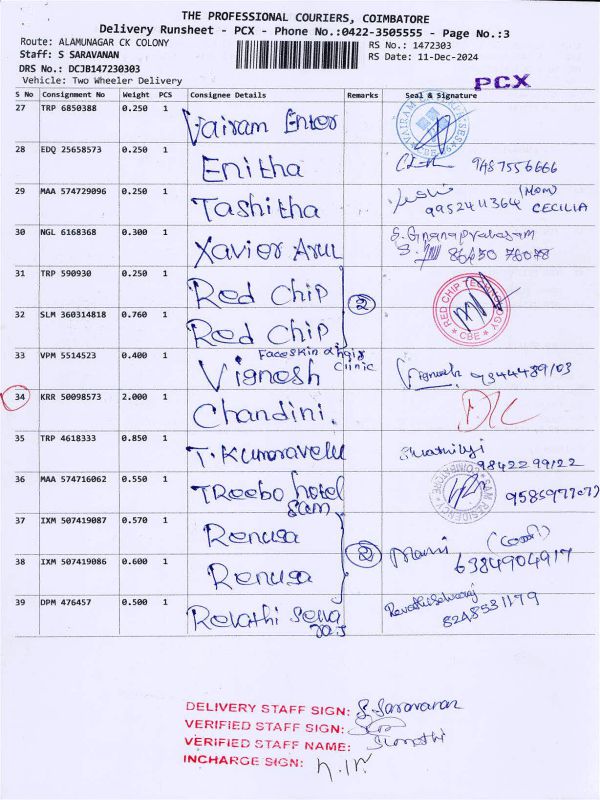 THE PROFESSIONAL COURIERS, COIMBATORE
Delivery Runsheet - PCX - Phone No.:0422-3505555 - Page No.:3
Route: ALAMUNAGAR CK COLONY
Staff: S SARAVANAN
DRS No.: DCJB147230303
Vehicle: Two Wheeler Delivery
RS No.: 1472303
RS Date: 11-Dec-2024
PCX
S No Consignment No Weight PCS Consignee Details Remarks Seal & Signature
27 TRP 6850388 0.250 1 Vairam Enter
28 EDQ 25658573 0.250 1 Enitha 9487556666
29 MAA 574729096 0.250 1 Tashitha (Mom)
9952411364 CECILIA
30 NGL 6168368 0.300 1 Xavier Arul S. Gnanapragasam
31 TRP 590930 0.250 1 Red Chip
2 RED CHIP TECHNOLOGY CBE
32 SLM 360314818 0.760 1 Red Chip
33 VPM 5514523 0.400 1 Vignesh Faceskin clinic Vignesh
34 KRR 50098573 2.000 1 Chandini. DLC
35 TRP 4618333 0.850 1 T. Kumaravelu 9842299122
36 MAA 574716062 0.550 1 TReebo hotel
Sam
37 IXM 507419087 0.570 1 Renusa
2 6384904917
38 IXM 507419086 0.600 1 Renusa
39 DPM 476457 0.500 1 Revathi Selva
raj
8248531179
DELIVERY STAFF SIGN: S. Saravanan
VERIFIED STAFF SIGN:
VERIFIED STAFF NAME: Sumathi
INCHARGE SIGN: